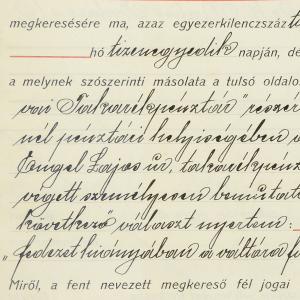 megkeresésére ma, azaz egyezerkilenczszáz
hó tizenegyedik napján, de
a melynek szószerinti másolata a tulsó oldalo
vári Takarékpénztár" részér
nél pénztári helyiségében a
Engel Lajos úr, takarékpénz
végett személyesen bemutatta
következő választ nyertem:
„fedezet hiányában a váltóra fi
Miről, a fent nevezett megkereső fél jogai